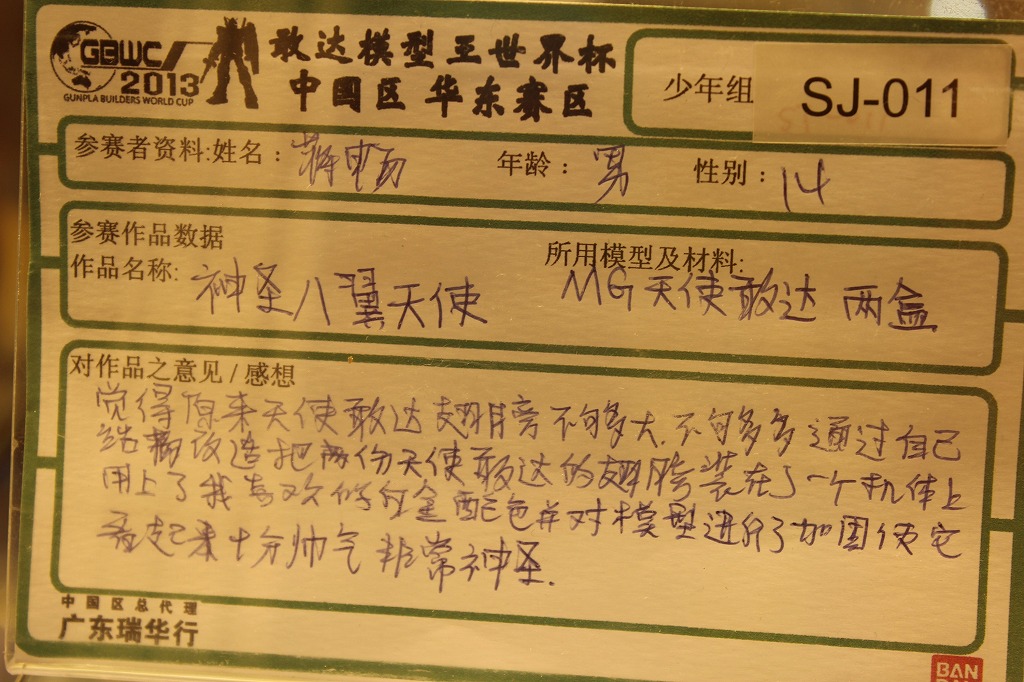 GBWC
2013
GUNPLA BUILDERS WORLD CUP
敢达模型王世界杯
中国区 华东赛区
少年组 SJ-011
参赛者资料:姓名: 蒋畅 年龄: 男 性别: 14
参赛作品数据
作品名称: 神圣八翼天使
所用模型及材料:
MG天使敢达 两盒
对作品之意见/感想
觉得原来天使敢达翅膀不够大,不够多 通过自己
结构改造把两份天使敢达的翅膀装在了一个机体上
用上了我喜欢的红金配色并对模型进行了加固使它
看起来十分帅气 非常神圣.
中国区总代理
广东瑞华行
BAN